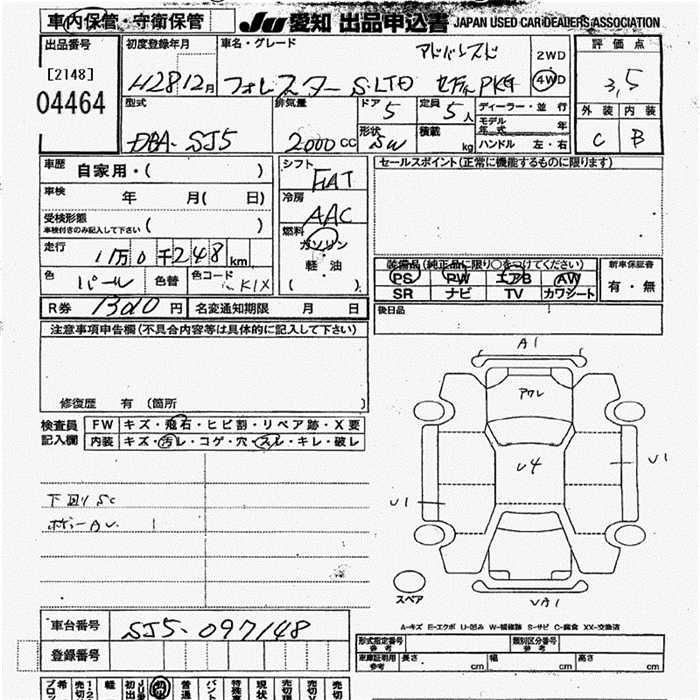 車内保管・守衛保管
JU 愛知 出品申込書 JAPAN USED CAR DEALERS ASSOCIATION
出品番号 初度登録年月 車名・グレード 評価点
[2148] アドバンスド 2WD
04464 H28 12月 フォレスター S-LTD セイフPKG 4WD 3.5
型式 排気量 ドア 5 定員 5人 ディーラー・並行 外装 内装
DBA-SJ5 2000cc 形状 SW 積載 kg モデル年式 年 C B
ハンドル 左・右
車歴 自家用・( ) シフト セールスポイント(正常に機能するものに限ります)
FAT
車検 年 月( 日) 冷房
AAC
受検形態 車検付きのみ記入して下さい ( ) 燃料
ガソリン
走行 1万0千248km 軽・油
装備品(純正品に限り○をつけてください) 新車保証書
色 パール 色替 色コード K1X ( )
PS PW エアB AW 有・無
SR ナビ TV カワシート
R券 円 名変通知期限 月 日 後日品
注意事項申告欄(不具合内容等は具体的に記入して下さい)
A1
アワレ
修復歴 有 (箇所
検査員記入欄 FW キズ・飛石・ヒビ割・リペア跡・X要
内装 キズ・汚レ・コゲ・穴・スレ・キレ・破レ
U4
U1
下回り SC U1
ボデーAU 1
スペア
UA1
A-キズ E-エクボ U-凹み W-補修跡 S-サビ C-腐食 XX-交換済
車台番号 SJ5-097148
形式指定番号 参考 類別区分番号 参考
登録番号
車庫証明用参考 長さ cm 幅 cm 高さ cm